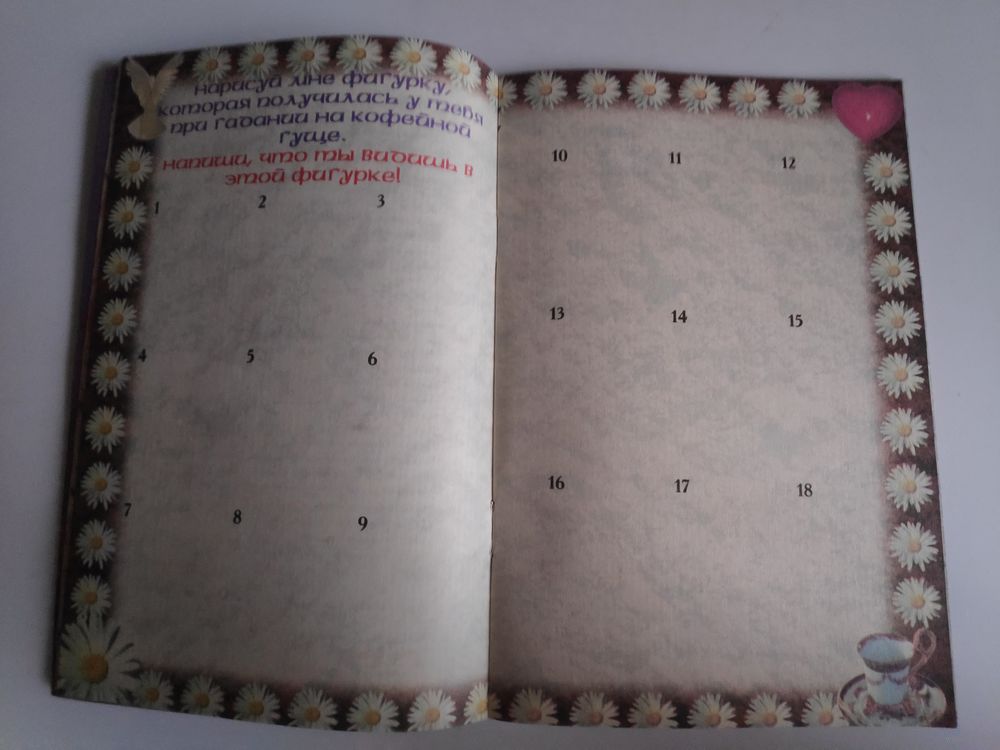 нарисуй мне фигурку,
которая получилась у тебя
при гадании на кофейной
гуще.
напиши, что ты видишь в
этой фигурке!
1 2 3
4 5 6
7 8 9
10 11 12
13 14 15
16 17 18